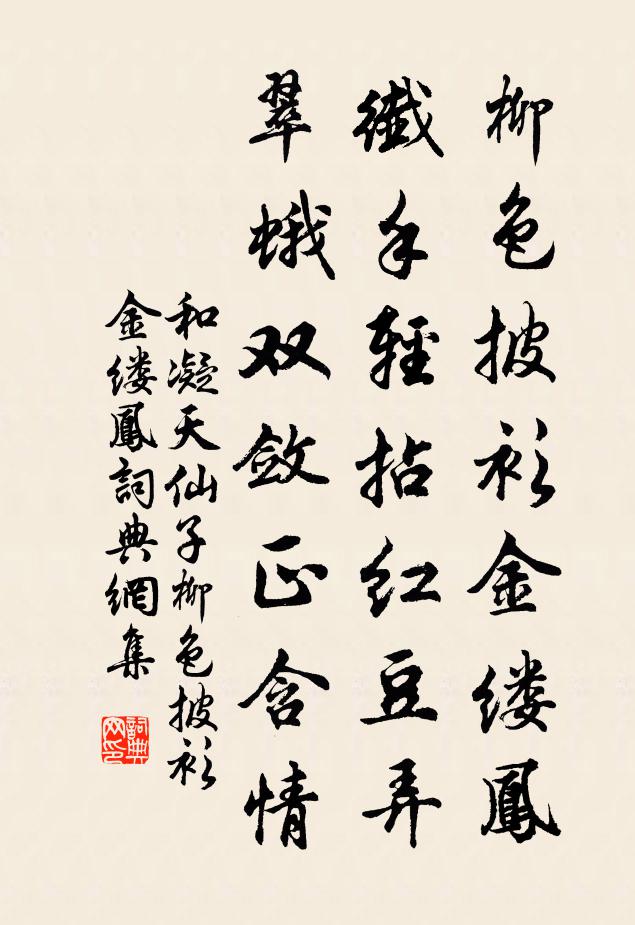 柳色披衫金缕鳳
纖手輕拈红豆弄
翠蛾双敛正含情
和凝天仙子柳色披衫
金缕鳳詞典網集
詞典
网印